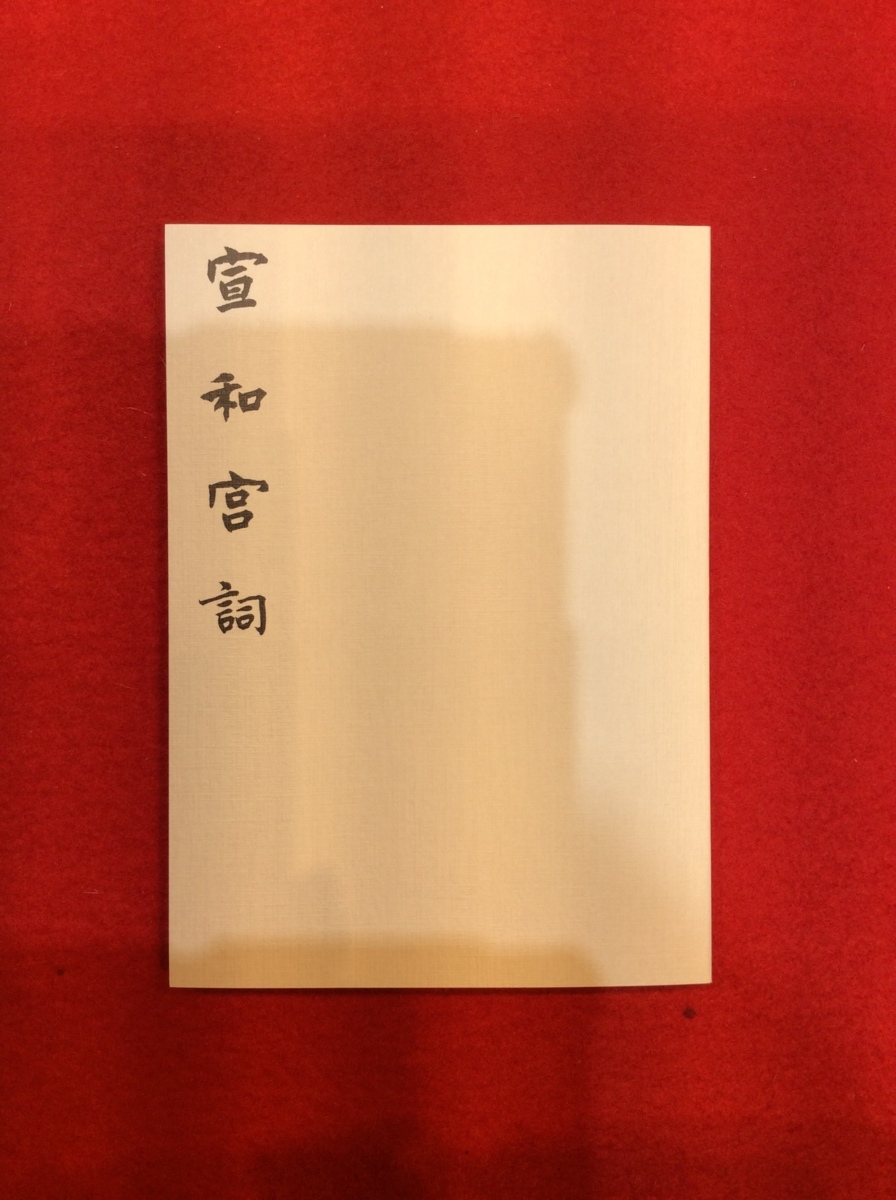 宣和宮詞